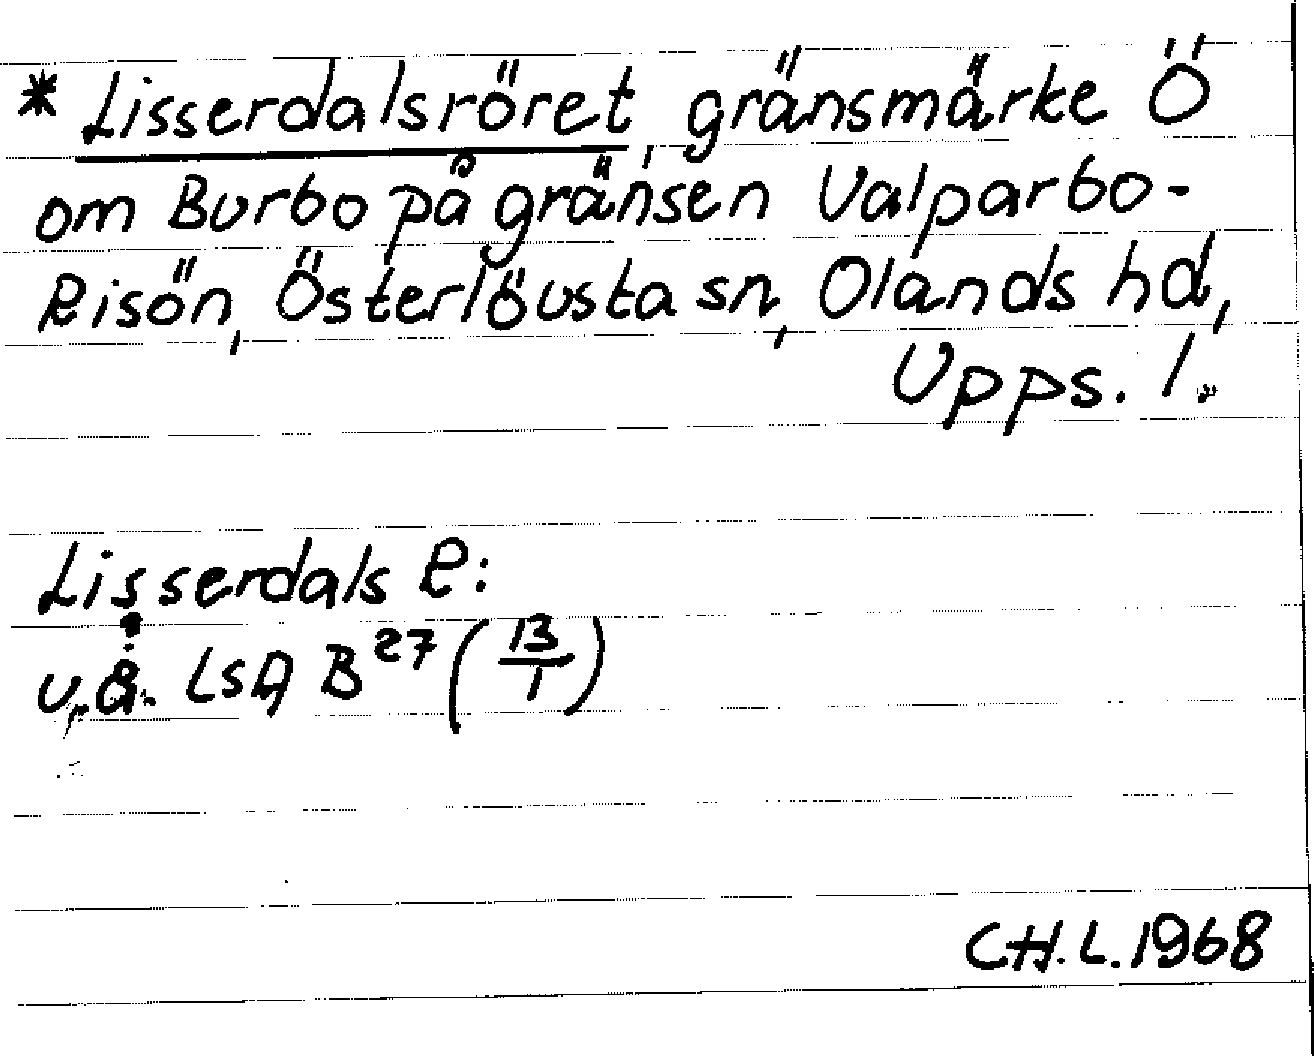 * Lisserdalsröret, gränsmärke Ö
om Burbo på gränsen Valparbo-
Risön, Österlövsta sn, Olands hd,
Upps. l.
Lisserdals R:
u.å. LSA B 27 (13/1)
C.H.L. 1968